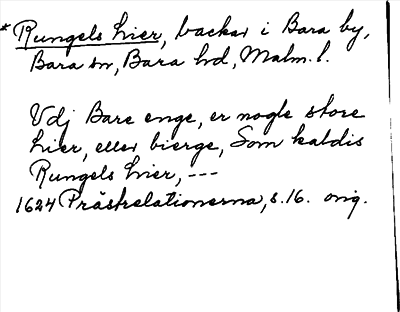 * Rungels hier, backar i Bara by,
Bara sn, Bara hd, Malm. l.
Vdj Bare enge, er nogle store
hier, eller bierge, Som kaldis
Rungels hier, ---
1624 Prästrelationerna, s. 16. orig.